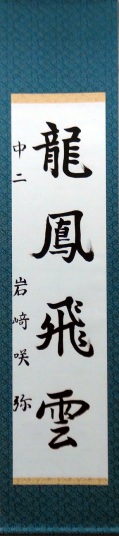 龍鳳飛雲
中二 岩﨑咲弥